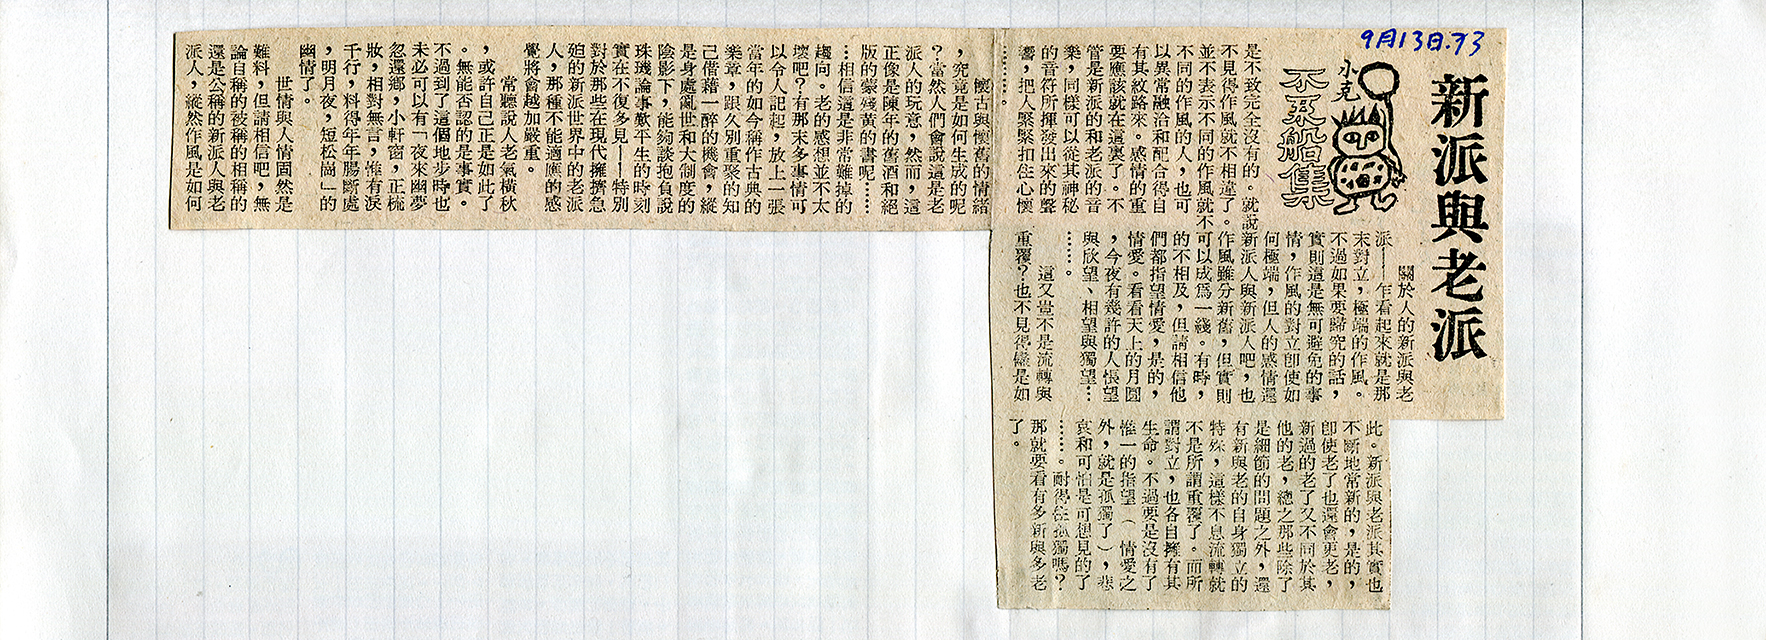 9月13日.73
新派與老派
小克
不系船集
關於人的新派與老
派——乍看起來就是那
末對立，極端的作風。
不過如果要歸究的話，
實則這是無可避免的事
情，作風的對立即使如
何極端，但人的感情還
是不致完全沒有的。就說新派人與新派人吧，也
不見得作風就不相違了。作風雖分新舊，但實則
並不表示不同的作風就不可以成為一綫。有時，
不同的作風的人，也可
以異常融洽和配合得自
有其紋路來。感情的重
要應該就在這裏了。不
管是新派的和老派的音
樂，同樣可以從其神秘
的音符所揮發出來的聲
響，把人緊緊扣住心懷
……。
懷古與懷舊的情緒
，究竟是如何生成的呢
？當然人們會說這是老
派人的玩意，然而，這
正像是陳年的舊酒和絕
版的蒙殘黃的書呢……
…相信這是非常難掉的
趨向。老的感想並不太
壞吧？有那末多事情可
以令人記起，放上一張
當年的如今稱作古典的
樂章，跟久別重聚的知
己偕藉一醉的機會，縱
是身處亂世和大制度的
陰影下，能夠談抱負說
珠璣論事歎平生的時刻
實在不復多見——特別
對於那些在現代擁擠急
廹的新派世界中的老派
人，那種不能適應的感
覺將會越加嚴重。
常聽說人老氣橫秋
，或許自己正是如此了
。無能否認的是事實。
不過到了這個地步時也
未必可以有「夜來幽夢
忽還鄉，小軒窗，正梳
妝，相對無言，惟有淚
千行，料得年年腸斷處
，明月夜，短松崗」的
幽情了。
世情與人情固然是
難料，但請相信吧，無
論自稱的被稱的相稱的
還是公稱的新派人與老
派人，縱然作風是如何
的不相及，但請相信他
們都指望情愛，是的，
情愛。看看天上的月圓
，今夜有幾許的人悵望
與欣望、相望與獨望…
……。
這又豈不是流轉與
重覆？也不見得儘是如
此。新派與老派其實也
不斷地常新的，是的，
即使老了也還會更老，
新過的老了又不同於其
他的老，總之那些除了
是細節的問題之外，還
有新與老的自身獨立的
特殊，這樣不息流轉就
不是所謂重覆了。而所
謂對立，也各自擁有其
生命。不過要是沒有了
惟一的指望（情愛之
外，就是孤獨了），悲
哀和可怕是可想見的了
……。耐得住孤獨嗎？
那就要看有多新與多老
了。